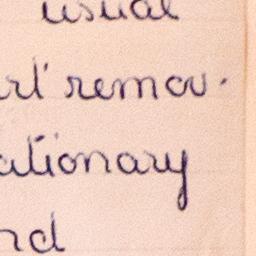 usual
art remov.
ationary
nd